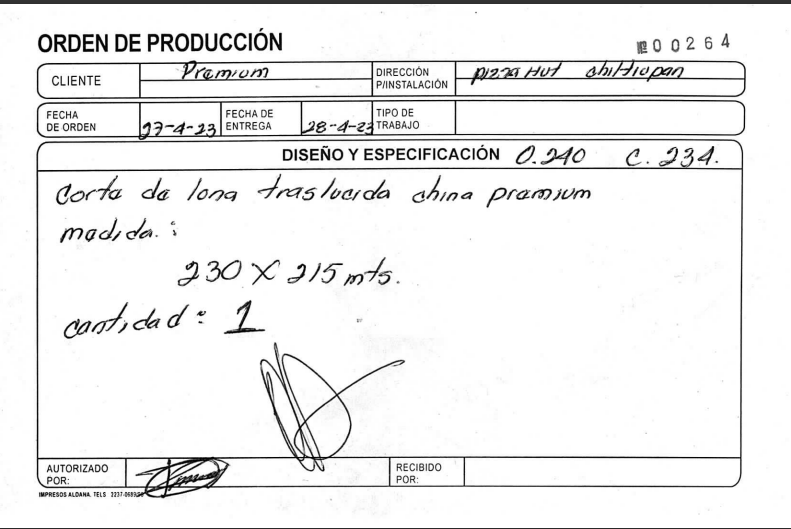 ORDEN DE PRODUCCIÓN
Nº 00264
CLIENTE Premium
DIRECCIÓN P/INSTALACIÓN Pizza Hut chiltiupan
FECHA DE ORDEN 27-4-23
FECHA DE ENTREGA 28-4-23
TIPO DE TRABAJO
DISEÑO Y ESPECIFICACIÓN O.240 C.234.
Corte de lona traslucida china premium
medida. :
230 X 215 mts.
cantidad : 1
AUTORIZADO POR:
RECIBIDO POR:
IMPRESOS ALDANA. TELS 2237-0689